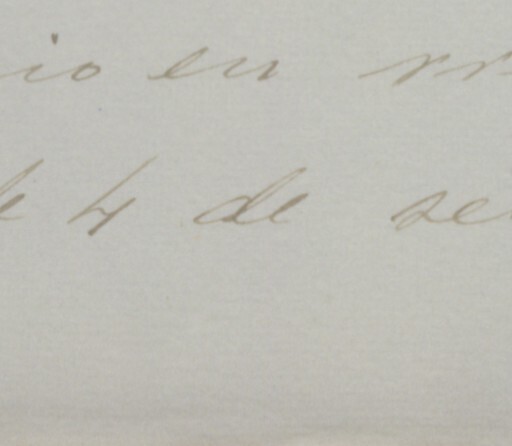 io en
4 de se